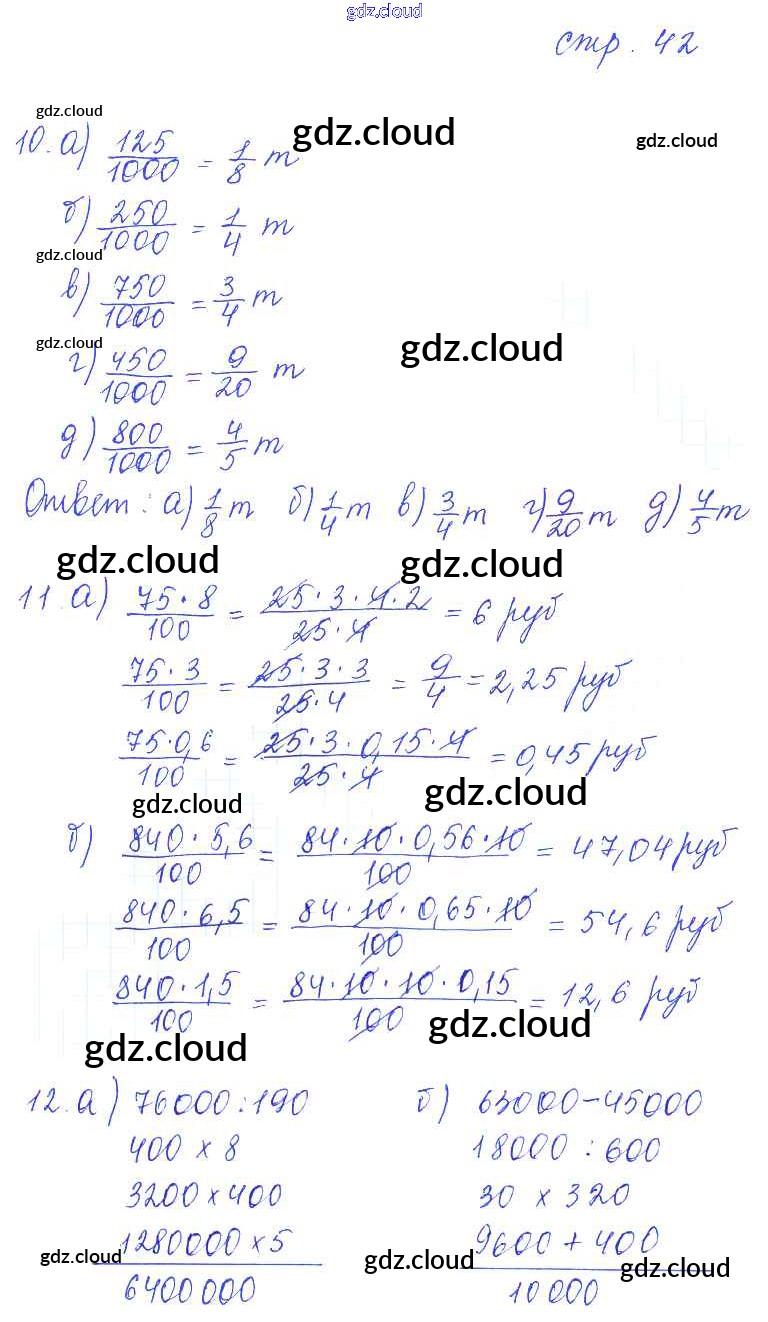 gdz.cloud
стр. 42
gdz.cloud
10. а) 125/1000 = 1/8 т gdz.cloud gdz.cloud
б) 250/1000 = 1/4 т
gdz.cloud
в) 750/1000 = 3/4 т
gdz.cloud gdz.cloud
г) 450/1000 = 9/20 т
д) 800/1000 = 4/5 т
Ответ: а) 1/8 т б) 1/4 т в) 3/4 т г) 9/20 т д) 4/5 т
gdz.cloud gdz.cloud
11. а) 75·8/100 = 25·3·4·2/25·4 = 6 руб
75·3/100 = 25·3·3/25·4 = 9/4 = 2,25 руб
75·0,6/100 = 25·3·0,15·4/25·4 = 0,45 руб
gdz.cloud gdz.cloud
б) 840·5,6/100 = 84·10·0,56·10/100 = 47,04 руб
840·6,5/100 = 84·10·0,65·10/100 = 54,6 руб
840·1,5/100 = 84·10·10·0,15/100 = 12,6 руб
gdz.cloud gdz.cloud
12. а) 76000:190 б) 63000-45000
400 x 8 18000 : 600
3200 x 400 30 x 320
1280000 x 5 9600 + 400
gdz.cloud gdz.cloud gdz.cloud
6400000 10000